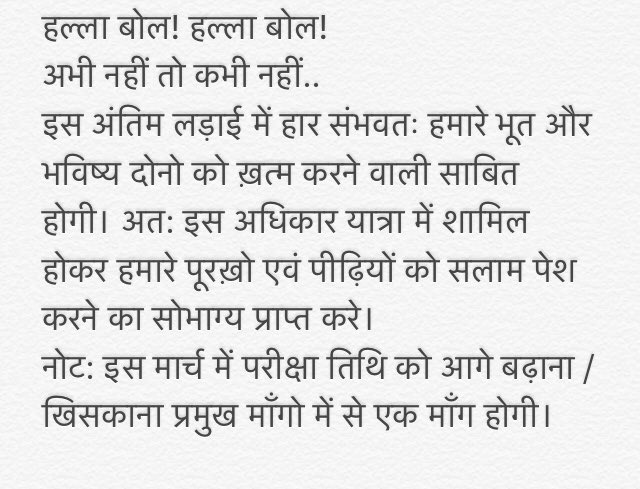 हल्ला बोल! हल्ला बोल!
अभी नहीं तो कभी नहीं..
इस अंतिम लड़ाई में हार संभवतः हमारे भूत और
भविष्य दोनो को ख़त्म करने वाली साबित
होगी। अत: इस अधिकार यात्रा में शामिल
होकर हमारे पूरख़ो एवं पीढ़ियों को सलाम पेश
करने का सोभाग्य प्राप्त करे।
नोट: इस मार्च में परीक्षा तिथि को आगे बढ़ाना /
खिसकाना प्रमुख माँगो में से एक माँग होगी।